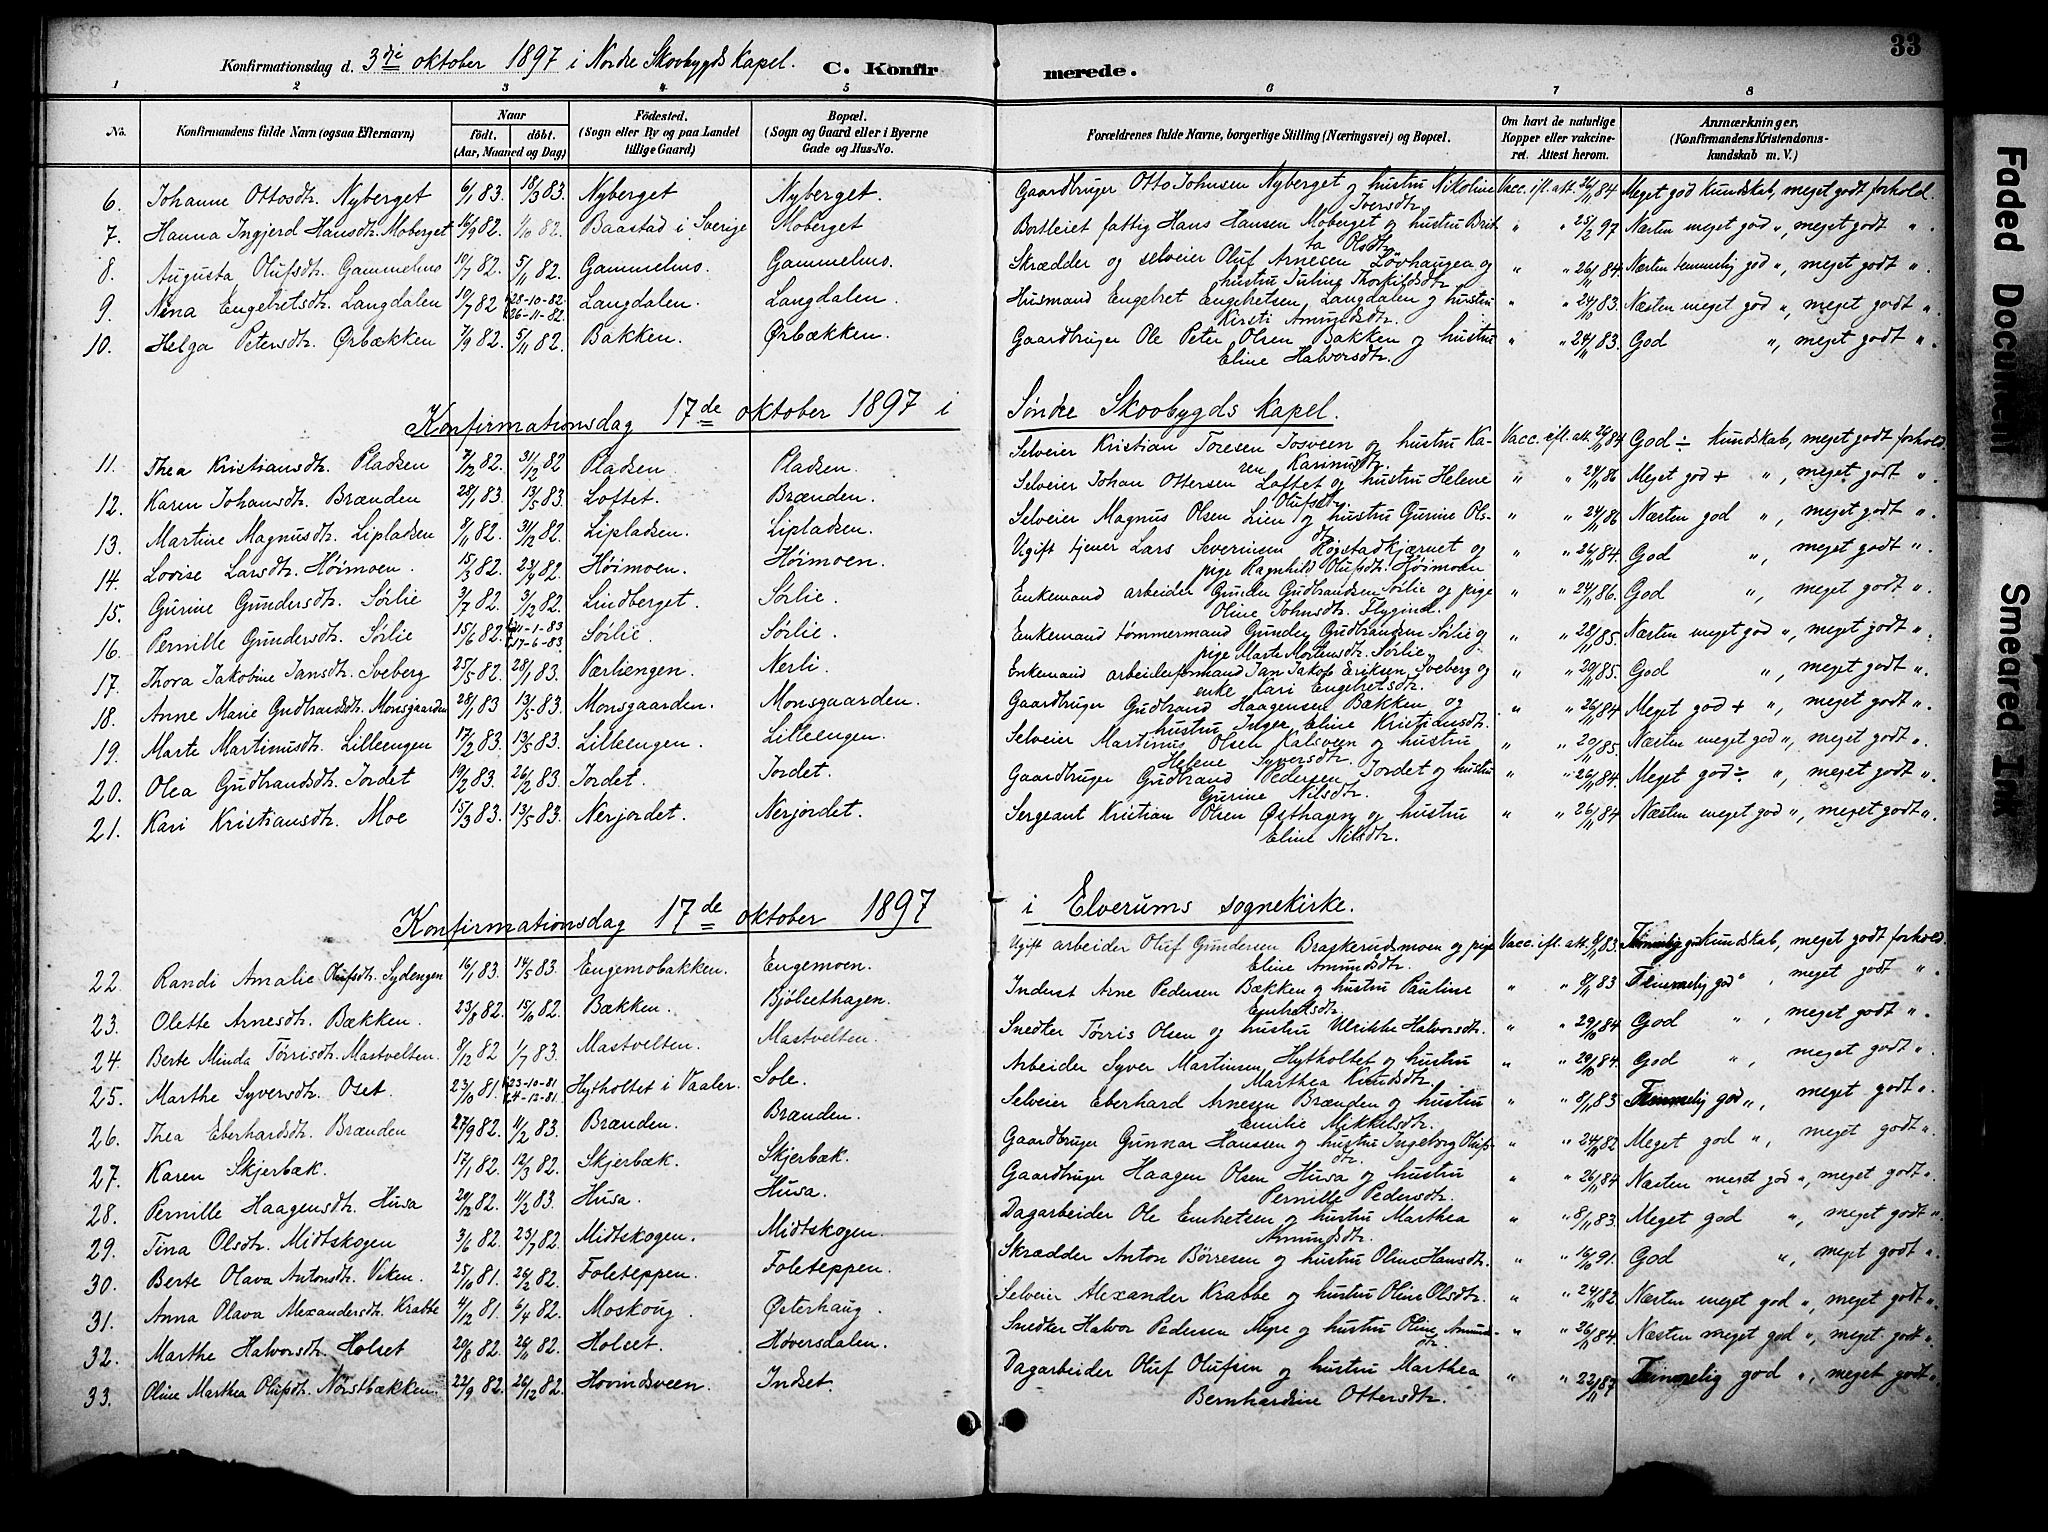 33
Konfirmationsdag d. 3dje oktober 1897 i Nordre Skovbygds Kapel. C. Konfirmerede.
1 2 3 4 5 6 7 8
No. Konfirmandens fulde Navn (ogsaa Efternavn) Naar födt. döbt. (Aar, Maaned og Dag) Födested. (Sogn eller By og paa Landet tillige Gaard) Bopæl. (Sogn og Gaard eller i Byerne Gade og Hus-No. Forældrenes fulde Navne, borgerlige Stilling (Næringsvei) og Bopæl. Om havt de naturlige Kopper eller vakcineret. Attest herom. Anmærkninger. (Konfirmandens Kristendomskundskab m. V.)
6. Johanne Ottosdtr. Nyberget 6/1 83. 18/3 83. Nyberget Nyberget. Gaardbruger Otto Johnsen Nyberget og hustru Nikoline Iversdtr. Vacc. ifl. att. 26/11 84 Meget god kundskab, meget godt forhold.
7. Hanna Ingjerd Hansdtr. Moberget 16/9 82. 1/10 82. Baastad i Sverige Moberget Bortleiet fattig Hans Hansen Moberget og hustru Britta Olsdtr. " " 25/2 97 Næsten meget god ", meget godt ".
8. Augusta Olufsdtr. Gammelmo 10/7 82. 5/11 82. Gammelmo. Gammelmo. Skrædder og selveier Oluf Arnesen Løvhaugen og hustru Juline Thorkildsdtr. " " 26/11 84 Næsten temmelig god ", meget godt ".
9. Nina Engebretsdtr. Langdalen 10/7 82 28-10-82. 26-11-82. Langdalen. Langdalen. Husmand Engebret Engebretsen Langdalen og hustru Kirsti Amundsdtr. " " 24/11 83. Næsten meget god ", meget godt ".
10. Helga Petersdtr. Ørbækken 7/9 82. 5/11 82. Bakken. Ørbækken. Gaardbruger Ole Peter Olsen Bakken og hustru Eline Halvorsdtr. " " 24/11 83. God ", meget godt ".
Konfirmationsdag 17de oktober 1897 i Søndre Skovbygds Kapel.
11. Thea Kristiansdtr. Pladsen 7/12 82. 31/12 82 Pladsen Pladsen. Selveier Kristian Toresen Josveen og hustru Karen Karinusdtr. Vacc. ifl. att. 26/11 84 God ÷ kundskab, meget godt forhold.
12. Karen Johansdtr. Brænden 28/1 83. 13/5 83. Loftet. Brænden. Selveier Johan Ottersen Loftet og hustru Helene Olufsdtr. " " 24/11 86 Meget god + ", meget godt ".
13. Martine Magnusdtr. Lipladsen 9/11 82. 31/12 82. Lipladsen. Lipladsen. Selveier Magnus Olsen Lien og hustru Gurine Olsdtr. " " 24/11 86 Næsten god ", meget godt ".
14. Lovise Larsdtr. Høimoen. 15/3 82. 23/4 82. Høimoen. Høimoen. Ugift tjener Lars Severinsen Høgstadkjærnet og pige Ragnhild Olufsdtr. Høimoen " " 26/11 84 God ", meget godt ".
15. Gurine Gundersdtr. Sørlie 3/7 82. 3/12 82. Lindberget. Sørlie. Enkemand arbeider Gunder Gudbrandsen Sørlie og pige Oline Johnsdtr. Flygind. " " 24/11 86. God ", meget godt ".
16. Pernille Gundersdtr. Sørlie 15/6 82. 21-1-83 17-6-83. Sørlie. Sørlie. Enkemand tømmermand Gunder Gudbrandsen Sørlie og pige Marte Mortensdtr. Sørlie. " " 28/11 85. Næsten meget god ", meget godt ".
17. Thora Jakobine Jansdtr. Sveberg 25/5 82. 28/1 83. Værliengen. Nerli. Enkemand arbeidsformand Jan Jakob Eriksen Sveberg og enke Kari Engebretsdtr. " " 29/11 85. God ", meget godt ".
18. Anne Marie Gudbrandsdtr. Monsgaarden 28/1 83 13/5 83. Monsgaarden. Monsgaarden. Gaardbruger Gudbrand Haagensen Bækken og hustru Inger Eline Kristiansdtr. " " 26/11 84 Meget god + ", meget godt ".
19. Marte Martinusdtr. Lilleengen 17/2 83. 13/5 83. Lilleengen. Lilleengen. Selveier Martinus Olsen Kalsveen og hustru Helene Syversdtr. " " 20/11 85. Næsten meget god ", meget godt ".
20. Olea Gudbrandsdtr. Jordet 19/2 83. 26/12 83. Jordet. Jordet. Gaardbruger Gudbrand Pedersen Jordet og hustru Gurine Nilsdtr. " " 26/11 84. Meget god ÷ ", meget godt ".
21. Kari Kristiansdtr. Moe 15/3 83. 13/5 83. Nerjordet. Nerjordet. Sergeant Kristian Olsen Østhagen og hustru Eline Nilsdtr. " " 26/11 84 Næsten meget god ", meget godt ".
Konfirmationsdag 17de oktober 1897 i Elverums sognekirke.
22. Randi Amalie Olufsdtr. Sydengen 16/1 83. 14/5 83. Engemobakken. Engemoen. Ugift arbeider Oluf Gundersen Braskerudsmoen og pige Eline Amundsdtr. Vacc. ifl. att. 8/11 83. Temmelig god kundskab, meget godt forhold.
23. Olette Arnesdtr. Bækken. 23/8 82. 15/10 82. Bækken. Bjölsethagen. Inderst Arne Pedersen Bækken og hustru Pauline Embretsdtr. " " 8/11 83 Temmelig god ", meget godt ".
24. Berte Minda Tørrisdtr. Mastvelten. 8/12 82 1/7 83. Mastvelten. Mastvelten. Snedker Tørris Olsen og hustru Ulrikke Halvorsdtr. " " 29/10 84 God ", meget godt ".
25. Marthe Syversdtr. Oset 23/10 81. 23-10-81 24-12-81. Hytholtet i Vaaler. Sole. Arbeider Syver Martinsen Hytholtet og hustru Marthea Knudsdtr. " " 29/10 84. God ", meget godt ".
26. Thea Eberhardsdtr. Brænden 27/9 82. 11/2 83. Brænden. Brænden. Selveier Eberhard Arnesen Brænden og hustru Emilie Mikkelsdtr. " " 8/11 83 Temmelig god ", meget godt ".
27. Karen Skjerbæk. 17/1 82. 12/3 82. Skjerbæk. Skjerbæk. Gaardbruger Gunnar Hanssen og hustru Ingeborg Olufsdtr. " " 24/11 82 Meget god ", meget godt ".
28. Pernille Haagensdtr. Husa 24/12 82. 11/2 83. Husa Husa. Gaardbruger Haagen Olsen Husa og hustru Pernille Pedersdtr. " " 26/11 84 Næsten meget god ", meget godt ".
29. Tina Olsdtr. Midtskogen 3/6 82. 23/7 82. Midtskogen. Midtskogen. Dagarbeider Ole Embretsen og hustru Marthea Amundsdtr. " " 8/11 83. Meget god ", meget godt ".
30. Berte Olava Antonsdtr. Viken. 25/10 81. 26/2 82. Foleteppen. Foleteppen. Skrædder Anton Börresen og hustru Oline Hansdtr. " " 16/10 91. God ", meget godt ".
31. Anna Olava Alexandersdtr. Krabbe 4/12 81. 6/4 82. Moskoug. Østerhaug. Selveier Alexander Krabbe og hustru Oline Olsdtr. " " 24/11 82. Næsten meget god ", meget godt ".
32. Marthe Halvorsdtr. Holset 20/8 82. 26/11 82. Holset. Høversdalen. Snedker Halvor Pedersen Myre og hustru Oline Amundsdtr. " " 26/11 84. Næsten meget god ", meget godt ".
33. Oline Marthea Olufsdtr. Nørstbækken. 22/9 82. 26/12 82. Hovindsveen. Indset. Dagarbeider Oluf Olufsen og hustru Marthea Bernhardine Ottersdtr. " " 22/11 87 Temmelig god ", meget godt ".
Faded Document
Smeared Ink